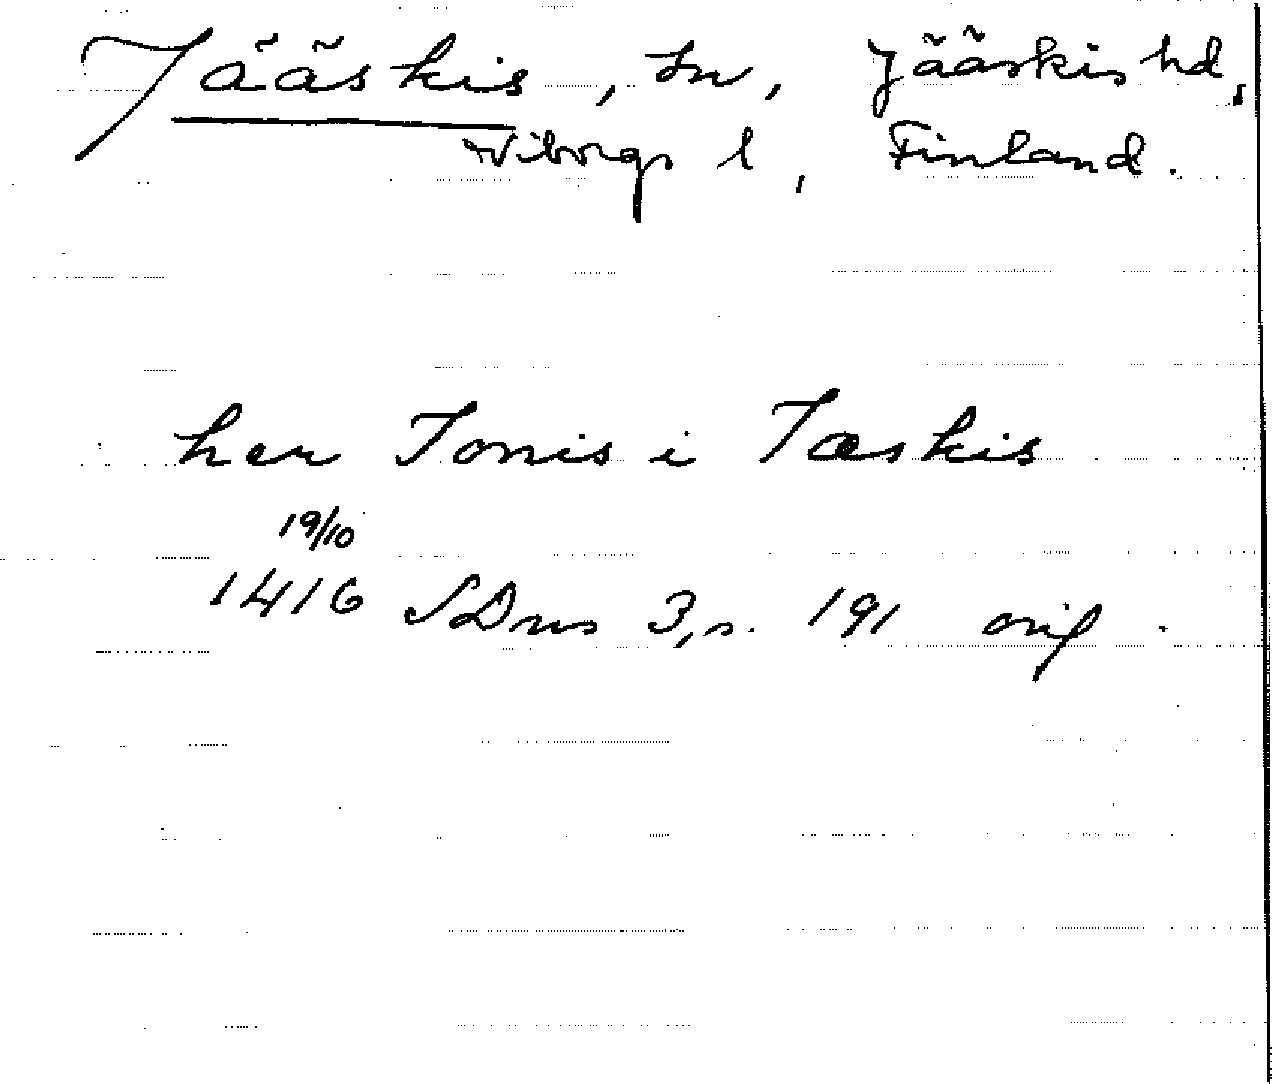 Jääskis, sn, Jääskis hd,
Viborgs l, Finland.
her Jonis i Jæskis
19/10
1416 SDns 3, s. 191 orig.